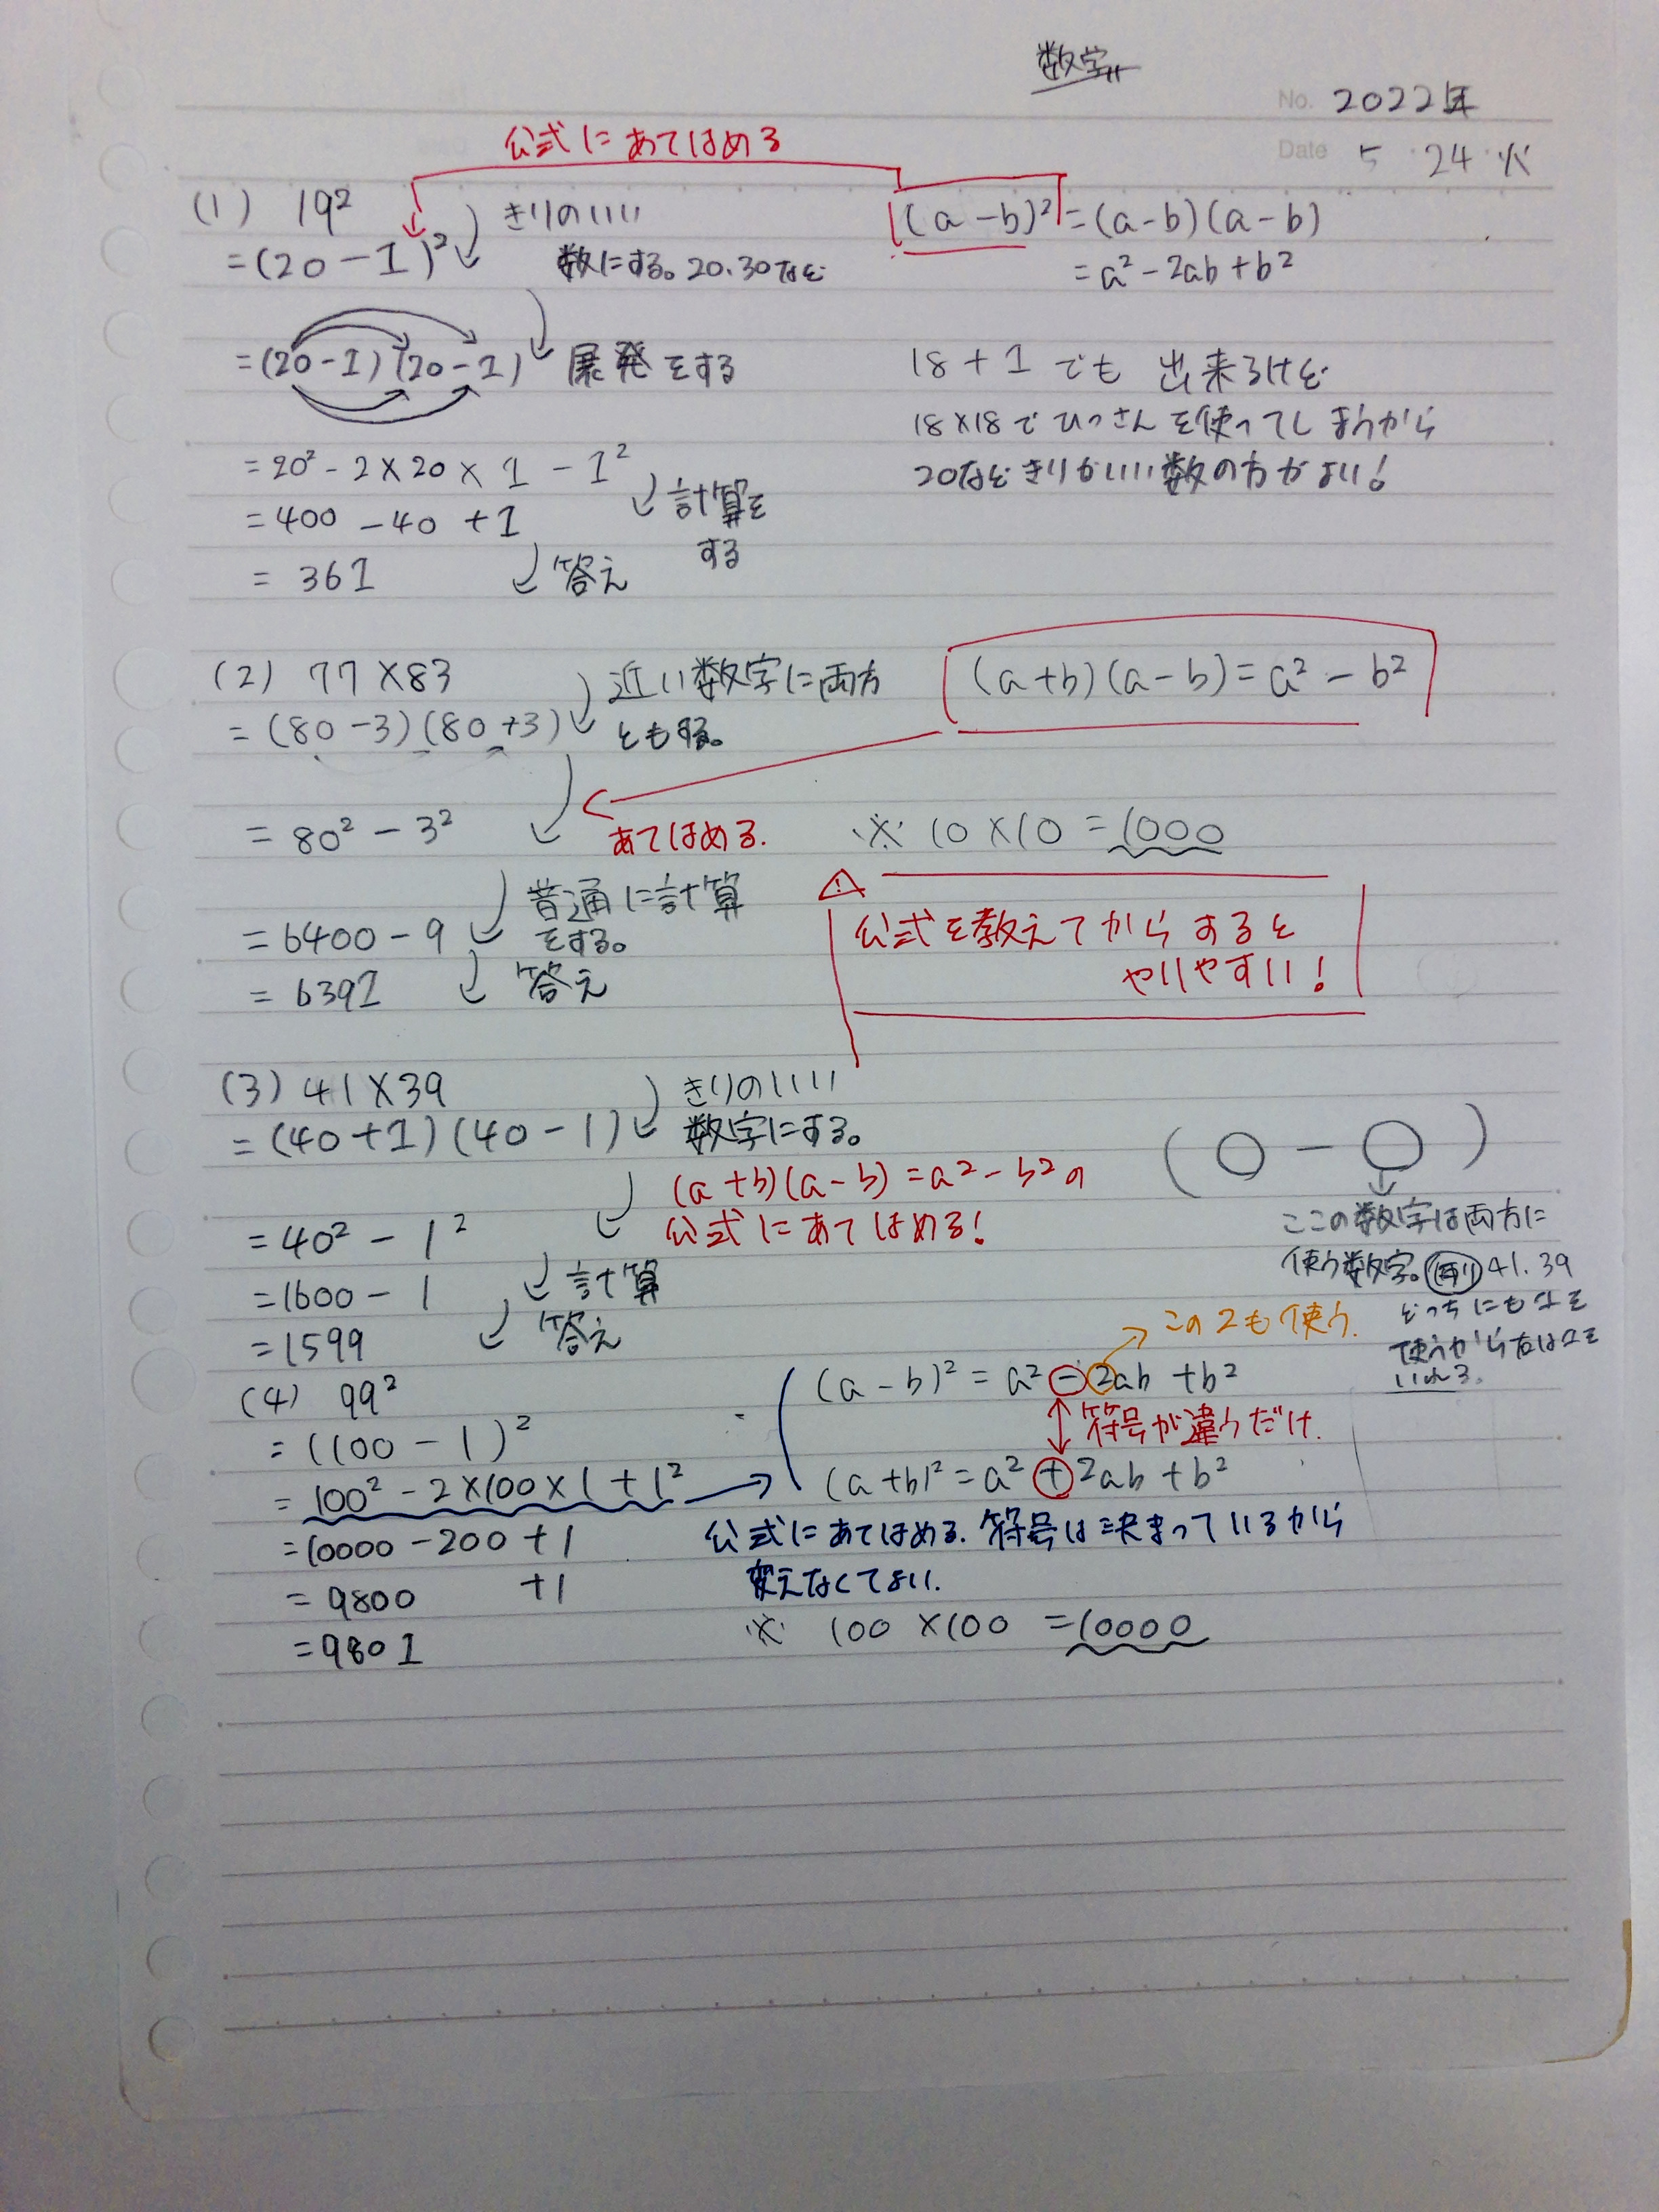 数学
No. 2022年
Date 5 24 火
公式にあてはめる
(1) 19²
= (20-1)²
きりのいい
数にする。20.30など
(a-b)² = (a-b)(a-b)
= a²-2ab+b²
= (20-1)(20-1)
展発をする
18+1でも 出来るけど
18×18でひっさんを使ってしまうから
20などきりがいい数の方がよい!
= 20² - 2×20×1 - 1²
= 400 - 40 + 1
計算を
する
= 361
答え
(2) 77×83
= (80-3)(80+3)
近い数字に両方
ともする。
(a+b)(a-b) = a² - b²
= 80² - 3²
あてはめる.
※ 10×10 = 1000
= 6400 - 9
普通に計算
をする。
= 6391
答え
公式を教えてからすると
やりやすい!
(3) 41×39
= (40+1)(40-1)
きりのいい
数字にする。
(a+b)(a-b) = a² - b² の
公式にあてはめる!
= 40² - 1²
= 1600 - 1
計算
= 1599
答え
( ○ - ○ )
ここの数字は両方に
使う数字。例 41.39
どっちにも1を
使うから右は1を
いれる.
(4) 99²
= (100-1)²
= 100² - 2×100×1 + 1²
= 10000 - 200 + 1
= 9800 +1
= 9801
この2も使う.
(a-b)² = a² - 2ab + b²
符号が違うだけ.
(a+b)² = a² + 2ab + b²
公式にあてはめる. 符号は決まっているから
変えなくてよい.
※ 100×100 = 10000